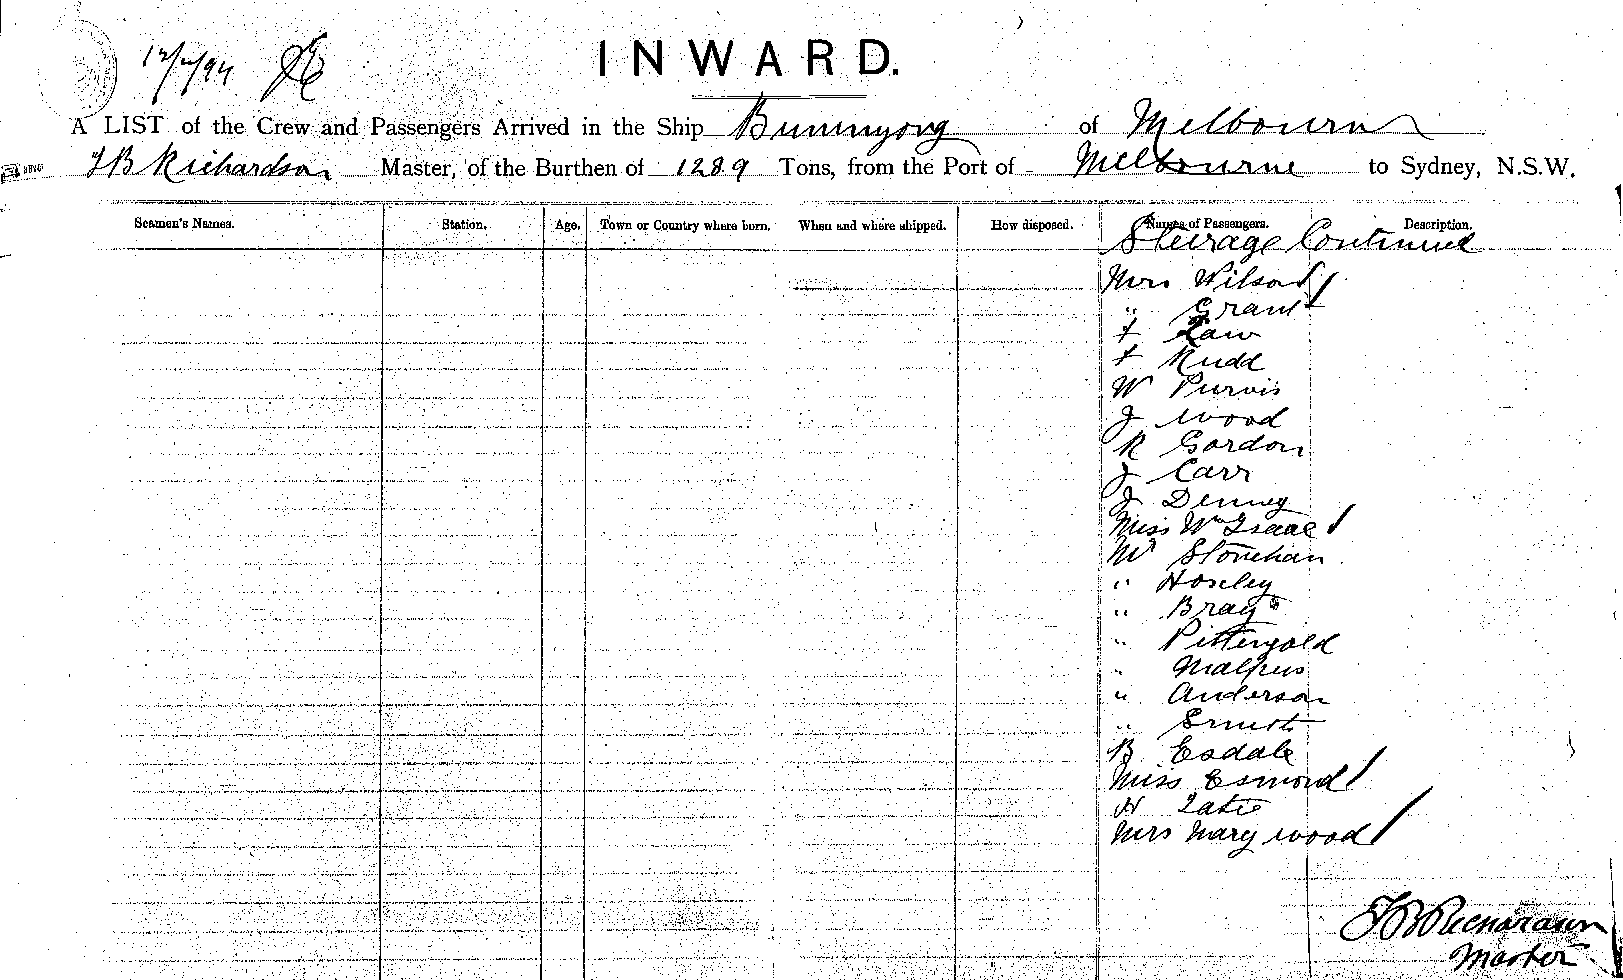 12/2/94
INWARD.
A LIST of the Crew and Passengers Arrived in the Ship Buninyong of Melbourne
Master, of the Burthen of 1289 Tons, from the Port of Melbourne to Sydney, N.S.W.
J B Richardson
Seamen's Names. Station. Age. Town or Country where born. When and where shipped. How disposed. Names of Passengers. Description.
Steirage Continued
Mrs Wilson
" Grant
Law
Rudd
W Purvis
J Wood
R Gordon
J Carr
J Denney
Miss Isaac
Mr Stonehan
" Hoseley
" Bray
" Pittengold
" Malpus
" Anderson
" Ernest
B Esdale
Miss Esmond
H
Mrs Mary Wood
Master